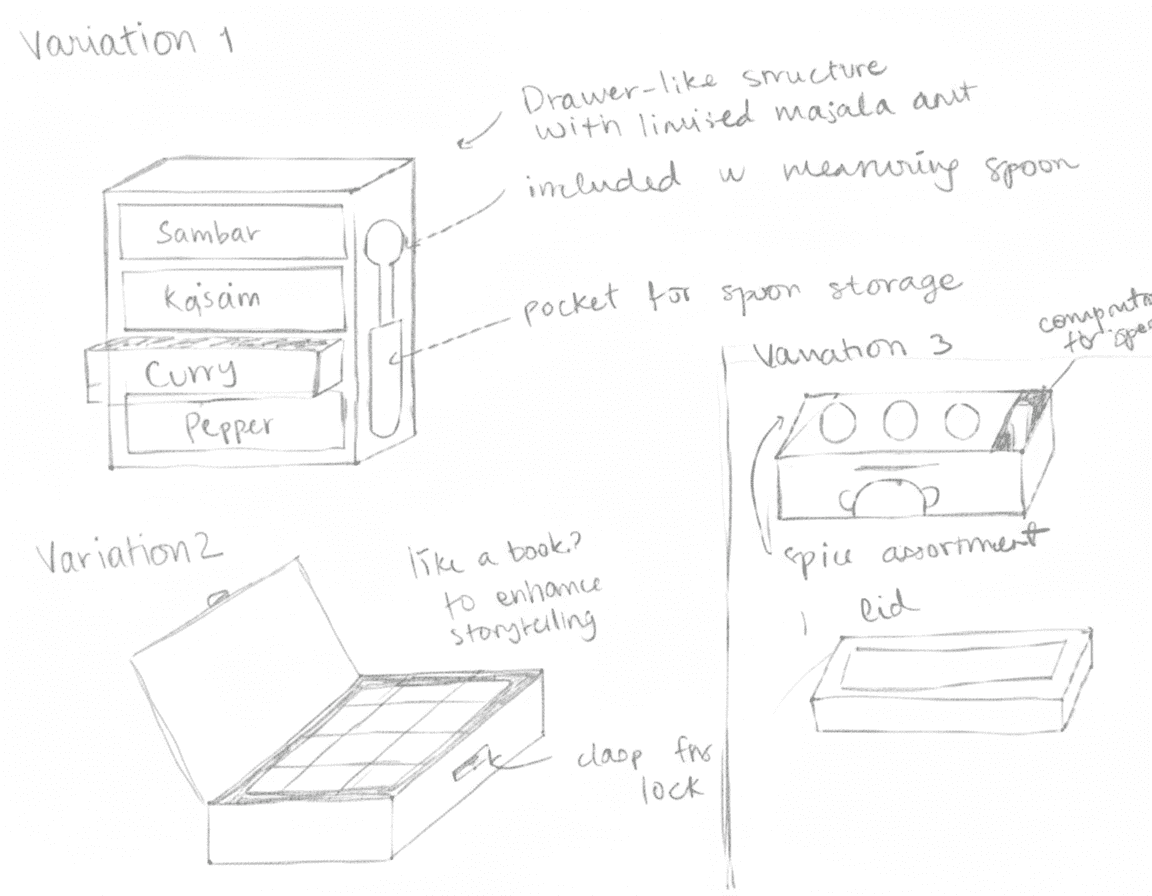 Variation 1
Drawer-like structure
with limised masala amt
included w measuring spoon
Sambar
Kasam
pocket for spoon storage
Curry
Pepper
Variation 2
like a book?
to enhance
storytelling
clasp for
lock
Variation 3
for
spice assortment
lid